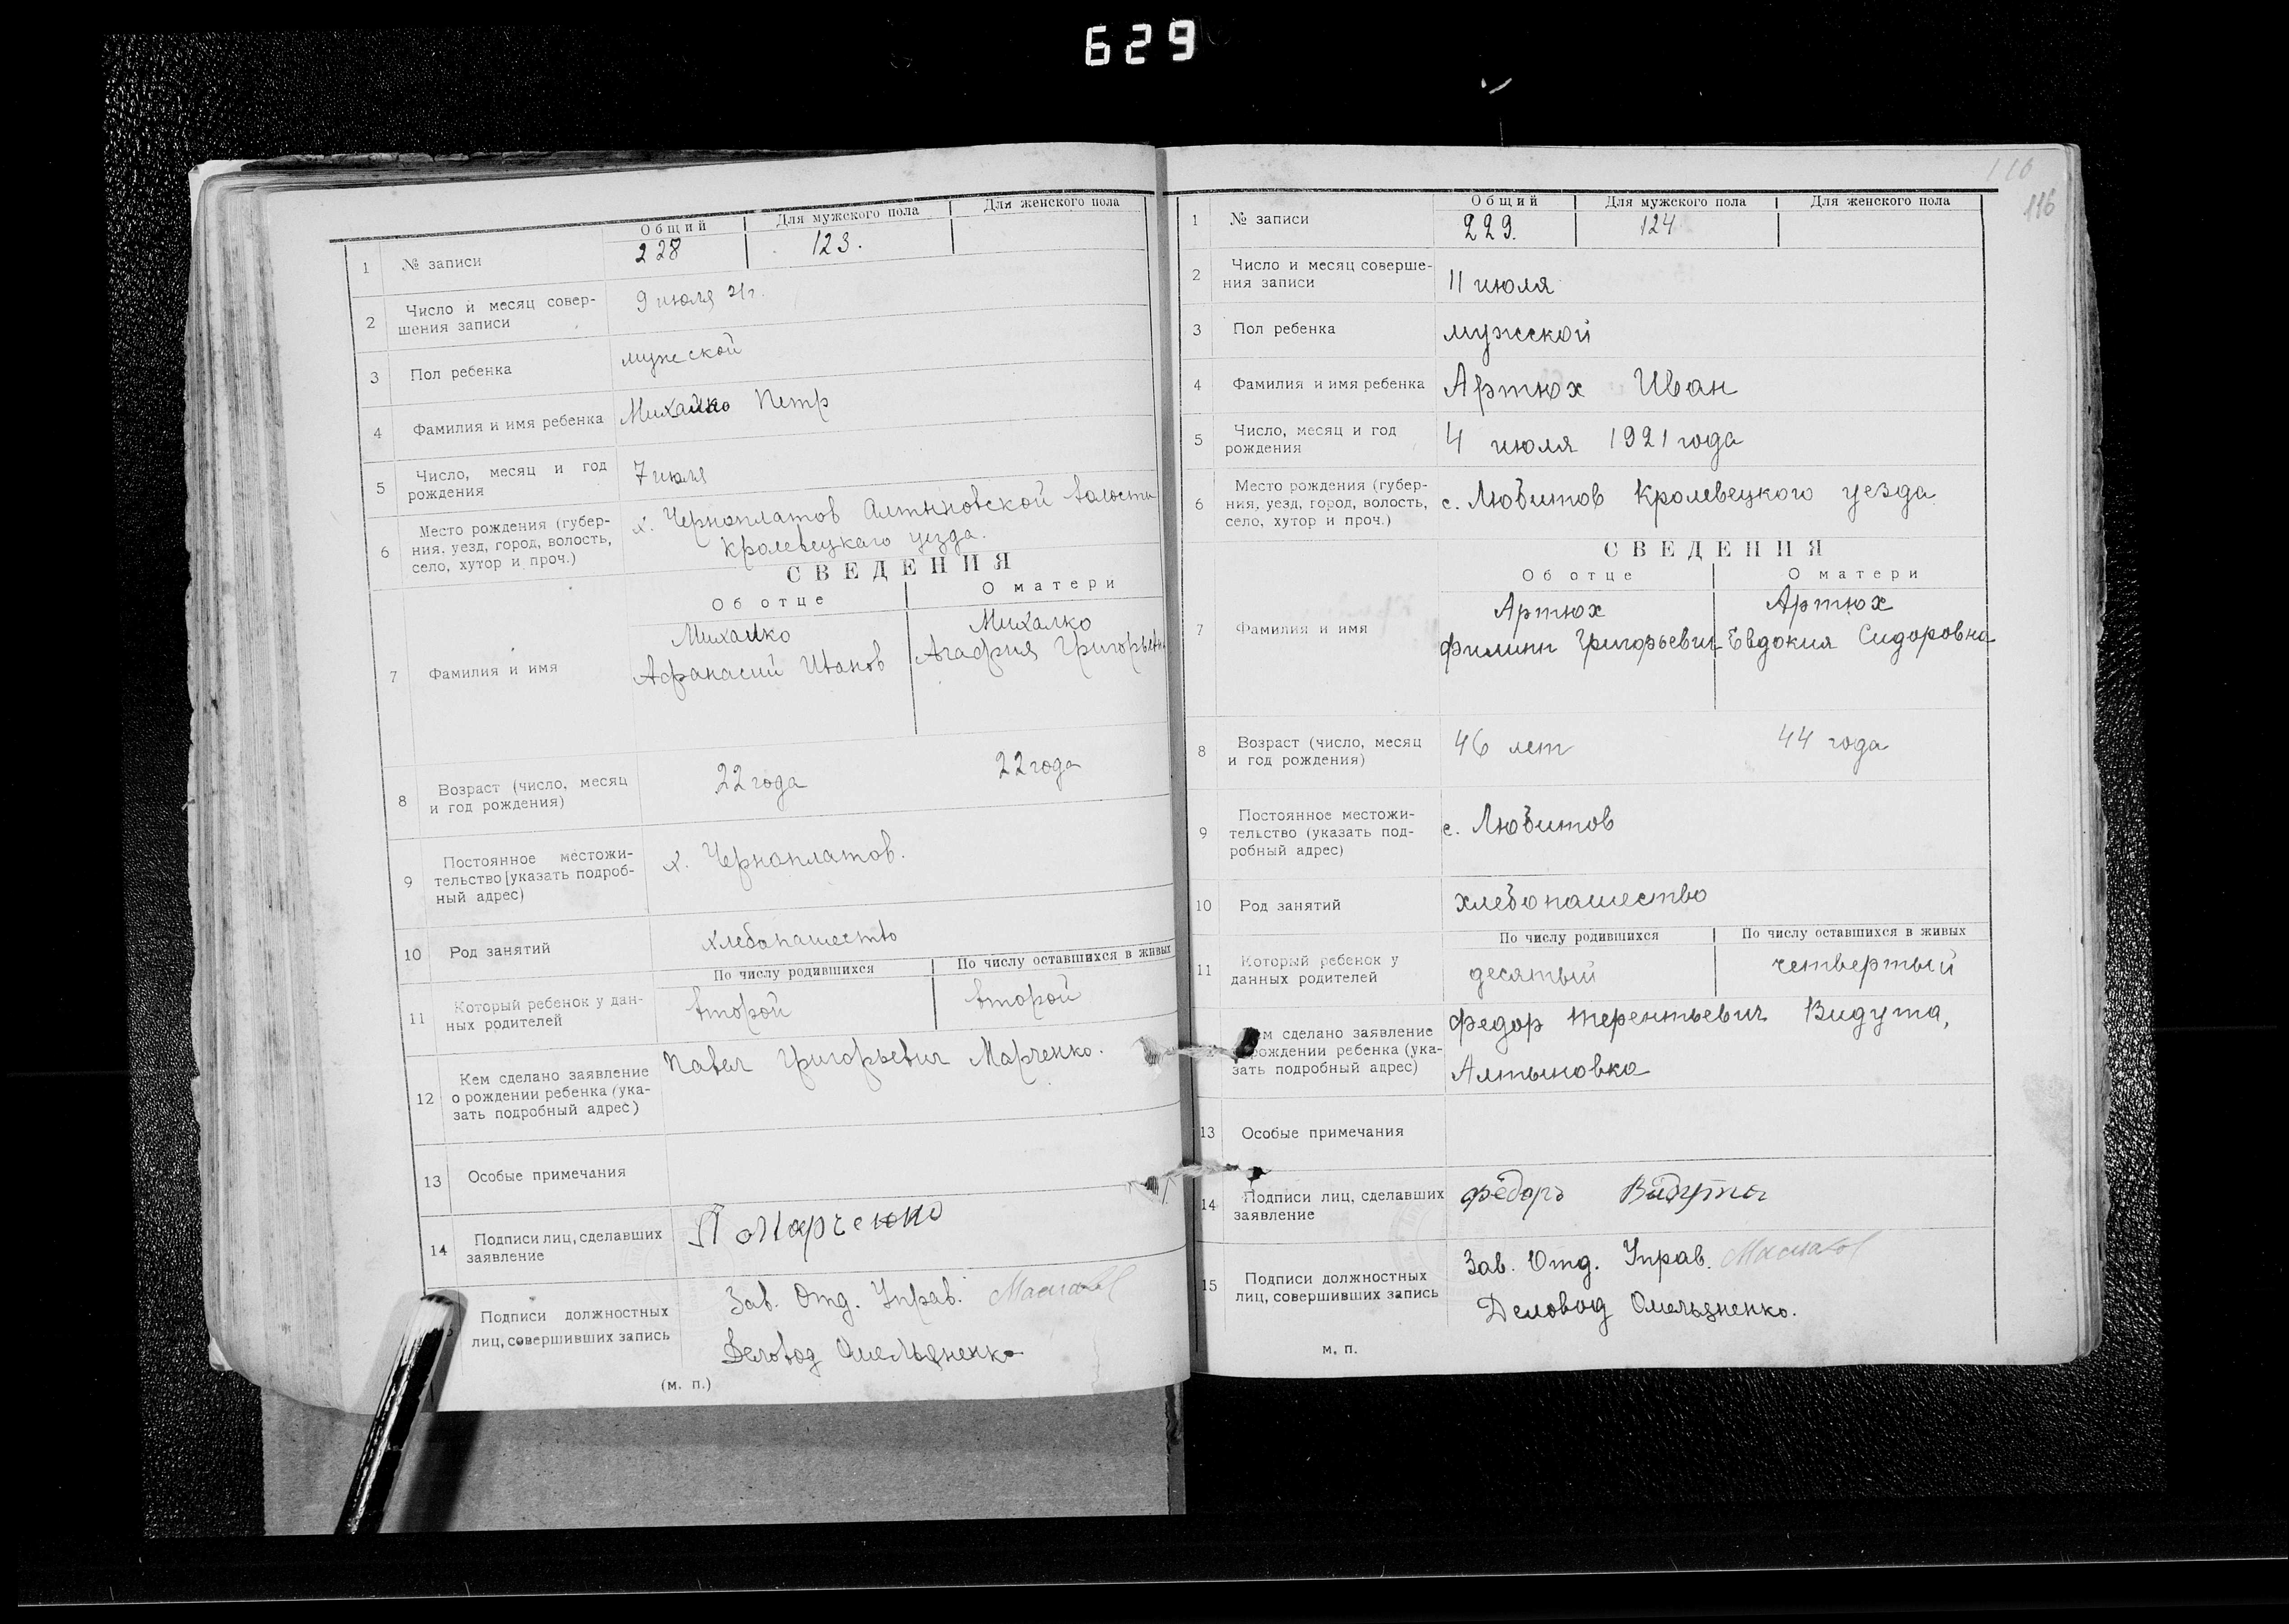 629
Общий
Для мужского пола
Для женского пола
1
№ записи
228
123.
2
Число и месяц совер-
шения записи
9 июля 21г.
3
Пол ребенка
мужской
4
Фамилия и имя ребенка
Михалко Петр
5
Число, месяц и год
рождения
7 июля
6
Место рождения (губер-
ния, уезд, город, волость,
село, хутор и проч.)
х. Черноплатов Алтыновской волости
Кролевецкаго уезда.
СВЕДЕНИЯ
Об отце
О матери
7
Фамилия и имя
Михалко
Афанасий Иванов
Михалко
Агафия Григорьевна
8
Возраст (число, месяц
и год рождения)
22 года
22 года
9
Постоянное местожи-
тельство [указать подроб-
ный адрес)
х. Черноплатов.
10
Род занятий
хлебопашество
По числу родившихся
По числу оставшихся в живых
11
Который ребенок у дан-
ных родителей
второй
второй
12
Кем сделано заявление
о рождении ребенка (ука-
зать подробный адрес)
Павел Григорьевич Марченко.
13
Особые примечания
14
Подписи лиц, сделавших
заявление
П Марченко
Подписи должностных
лиц, совершивших запись
Зав. Отд. Управ.
Деловод Омельяненко
(м. п.)
116
116
Общий
Для мужского пола
Для женского пола
1
№ записи
229.
124
2
Число и месяц соверше-
ния записи
11 июля
3
Пол ребенка
мужской
4
Фамилия и имя ребенка
Артюх Иван
5
Число, месяц и год
рождения
4 июля 1921 года
6
Место рождения (губер-
ния, уезд, город, волость,
село, хутор и проч.)
с. Любитов Кролевецкого уезда
СВЕДЕНИЯ
Об отце
О матери
7
Фамилия и имя
Артюх
Филипп Григорьевич
Артюх
Евдокия Сидоровна
8
Возраст (число, месяц
и год рождения)
46 лет
44 года
9
Постоянное местожи-
тельство (указать под-
робный адрес)
с. Любитов
10
Род занятий
хлебопашество
По числу родившихся
По числу оставшихся в живых
11
Который ребенок у
данных родителей
десятый
четвертый
Кем сделано заявление
рождении ребенка (ука-
зать подробный адрес)
Федор Терентьевич Видута,
Алтыновка
13
Особые примечания
14
Подписи лиц, сделавших
заявление
Фёдоръ Видута
15
Подписи должностных
лиц, совершивших запись
Зав. Отд. Управ.
Деловод Омельяненко.
м. п.